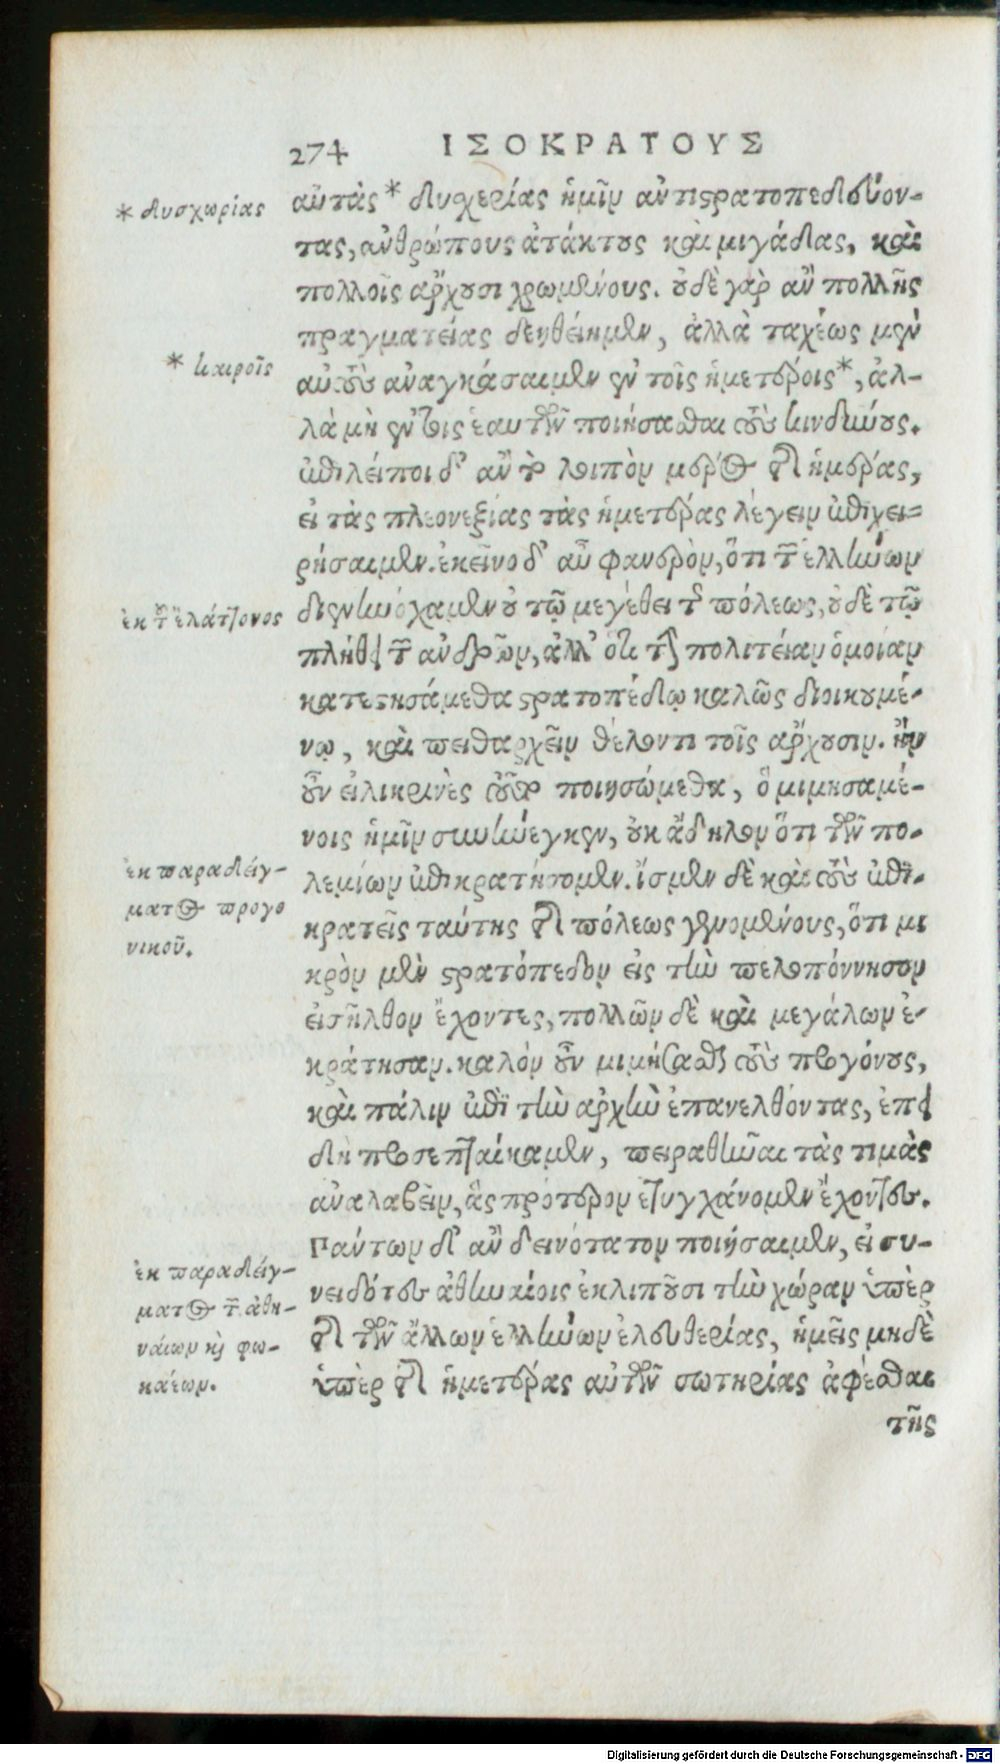 274 ΙΣΟΚΡΑΤΟΥΣ
* δυσχωρίας
αὐτὰς* δυχερίας ἡμῖν ἀντιστρατοπεδεύον-
τας, ἀνθρώπους ἀτάκτους καὶ μιγάδας, καὶ
πολλοῖς ἄρχουσι χρωμένους. οὐδὲ γὰρ ἂν πολλῆς
πραγματείας δεηθείημεν, ἀλλὰ ταχέως μὲν
* καιροῖς
αὐτοὺς ἀναγκάσαιμεν ἐν τοῖς ἡμετέροις*, ἀλ-
λὰ μὴ ἐν τοῖς ἑαυτῶν ποιήσασθαι τοὺς κινδύνους.
ἐπιλείποι δ' ἂν τὸ λοιπὸν μέρος τῆς ἡμέρας,
εἰ τὰς πλεονεξίας τὰς ἡμετέρας λέγειν ἐπιχει=
ρήσαιμεν. ἐκεῖνο δ' αὖ φανερὸν, ὅτι τῶν ἑλλήνων
ἐκ τοῦ ἐλάττονος
διενηνόχαμεν οὐ τῷ μεγέθει τῆς πόλεως, οὐδὲ τῷ
πλήθει τῶν ἀνδρῶν, ἀλλ' ὅτι τὴν πολιτείαν ὁμοίαν
κατεστησάμεθα στρατοπέδῳ καλῶς διοικουμέ-
νῳ, καὶ πειθαρχεῖν θέλοντι τοῖς ἄρχουσιν. ἢν
οὖν εἰλικρινὲς τοῦτο ποιησώμεθα, ὃ μιμησαμέ-
νοις ἡμῖν συνήνεγκεν, οὐκ ἄδηλον ὅτι τῶν πο-
ἐκ παραδείγ-
ματος προγο
νικοῦ.
λεμίων ἐπικρατήσομεν. ἴσμεν δὲ καὶ τοὺς ἐπι-
κρατεῖς ταύτης τῆς πόλεως γενομένους, ὅτι μι
κρὸν μὲν στρατόπεδον εἰς τὴν πελοπόννησον
εἰσῆλθον ἔχοντες, πολλῶν δὲ καὶ μεγάλων ἐ-
κράτησαν. καλὸν οὖν μιμήσασθαι τοὺς προγόνους,
καὶ πάλιν ἐπὶ τὴν ἀρχὴν ἐπανελθόντας, ἐπει
δὴ προσεπταίκαμεν, πειραθῆναι τὰς τιμὰς
ἀναλαβεῖν, ἃς πρότερον ἐτυγχάνομεν ἔχοντες.
ἐκ παραδείγ-
ματος τῶν ἀθη-
ναίων καὶ φω-
καέων.
Πάντων δ' ἂν δεινότατον ποιήσαιμεν, εἰ συ-
νειδότες ἀθηναίοις ἐκλιποῦσι τὴν χώραν ὑπὲρ
τῆς τῶν ἄλλων ἑλλήνων ἐλευθερίας, ἡμεῖς μηδὲ
ὑπὲρ τῆς ἡμετέρας αὐτῶν σωτηρίας ἀφέσθαι
τῆς
Digitalisierung gefördert durch die Deutsche Forschungsgemeinschaft - DFG